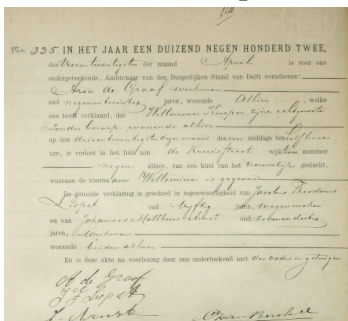 No. 335 IN HET JAAR EEN DUIZEND NEGEN HONDERD TWEE,
den Vierentwintigsten der maand April is voor ons
ondergeteekende, Ambtenaar van den Burgerlijken Stand van Delft verschenen:
Arie de Graaf, werkman
oud negenentwintig jaren, wonende alhier, welke
ons heeft verklaard, dat Willemina Kuiper zijne echtgenoote
zonder beroep, wonende alhier
op den dezer maand des middags te half twee
ure, is bevallen in het huis aan de Kruisstraat wijk nummer
negen alhier, van een kind van het vrouwelijk geslacht,
waaraan de voornaam Willemina is gegeven
De gemelde verklaring is geschied in tegenwoordigheid van Jacobus Theodorus
oud vijftig jaren, wagenmaker
en van Johannes Mattheus oud
jaren, werkman
wonende beiden alhier
En is deze akte na voorlezing door ons onderteekend met den vader en getuigen
A de Graaf